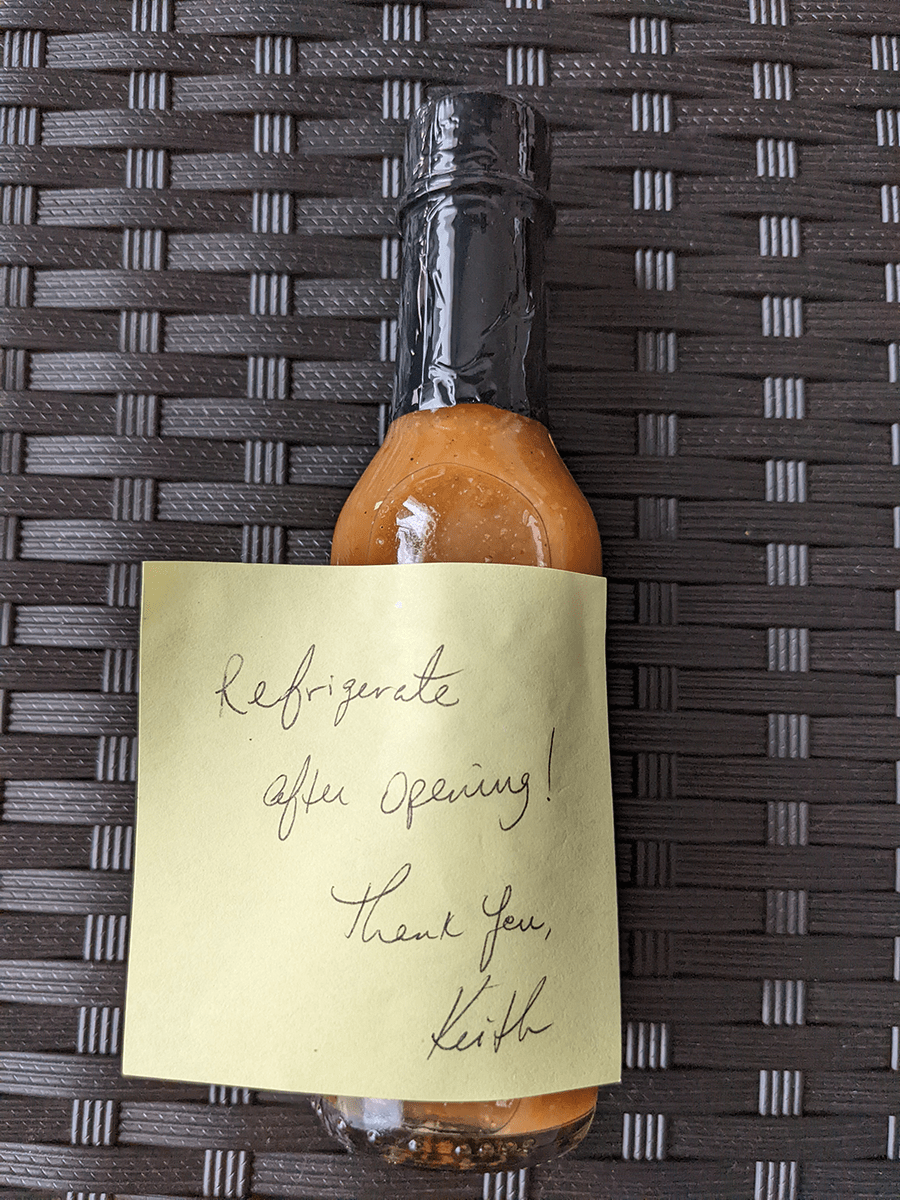 Refrigerate
after opening!
Thank You,
Keith